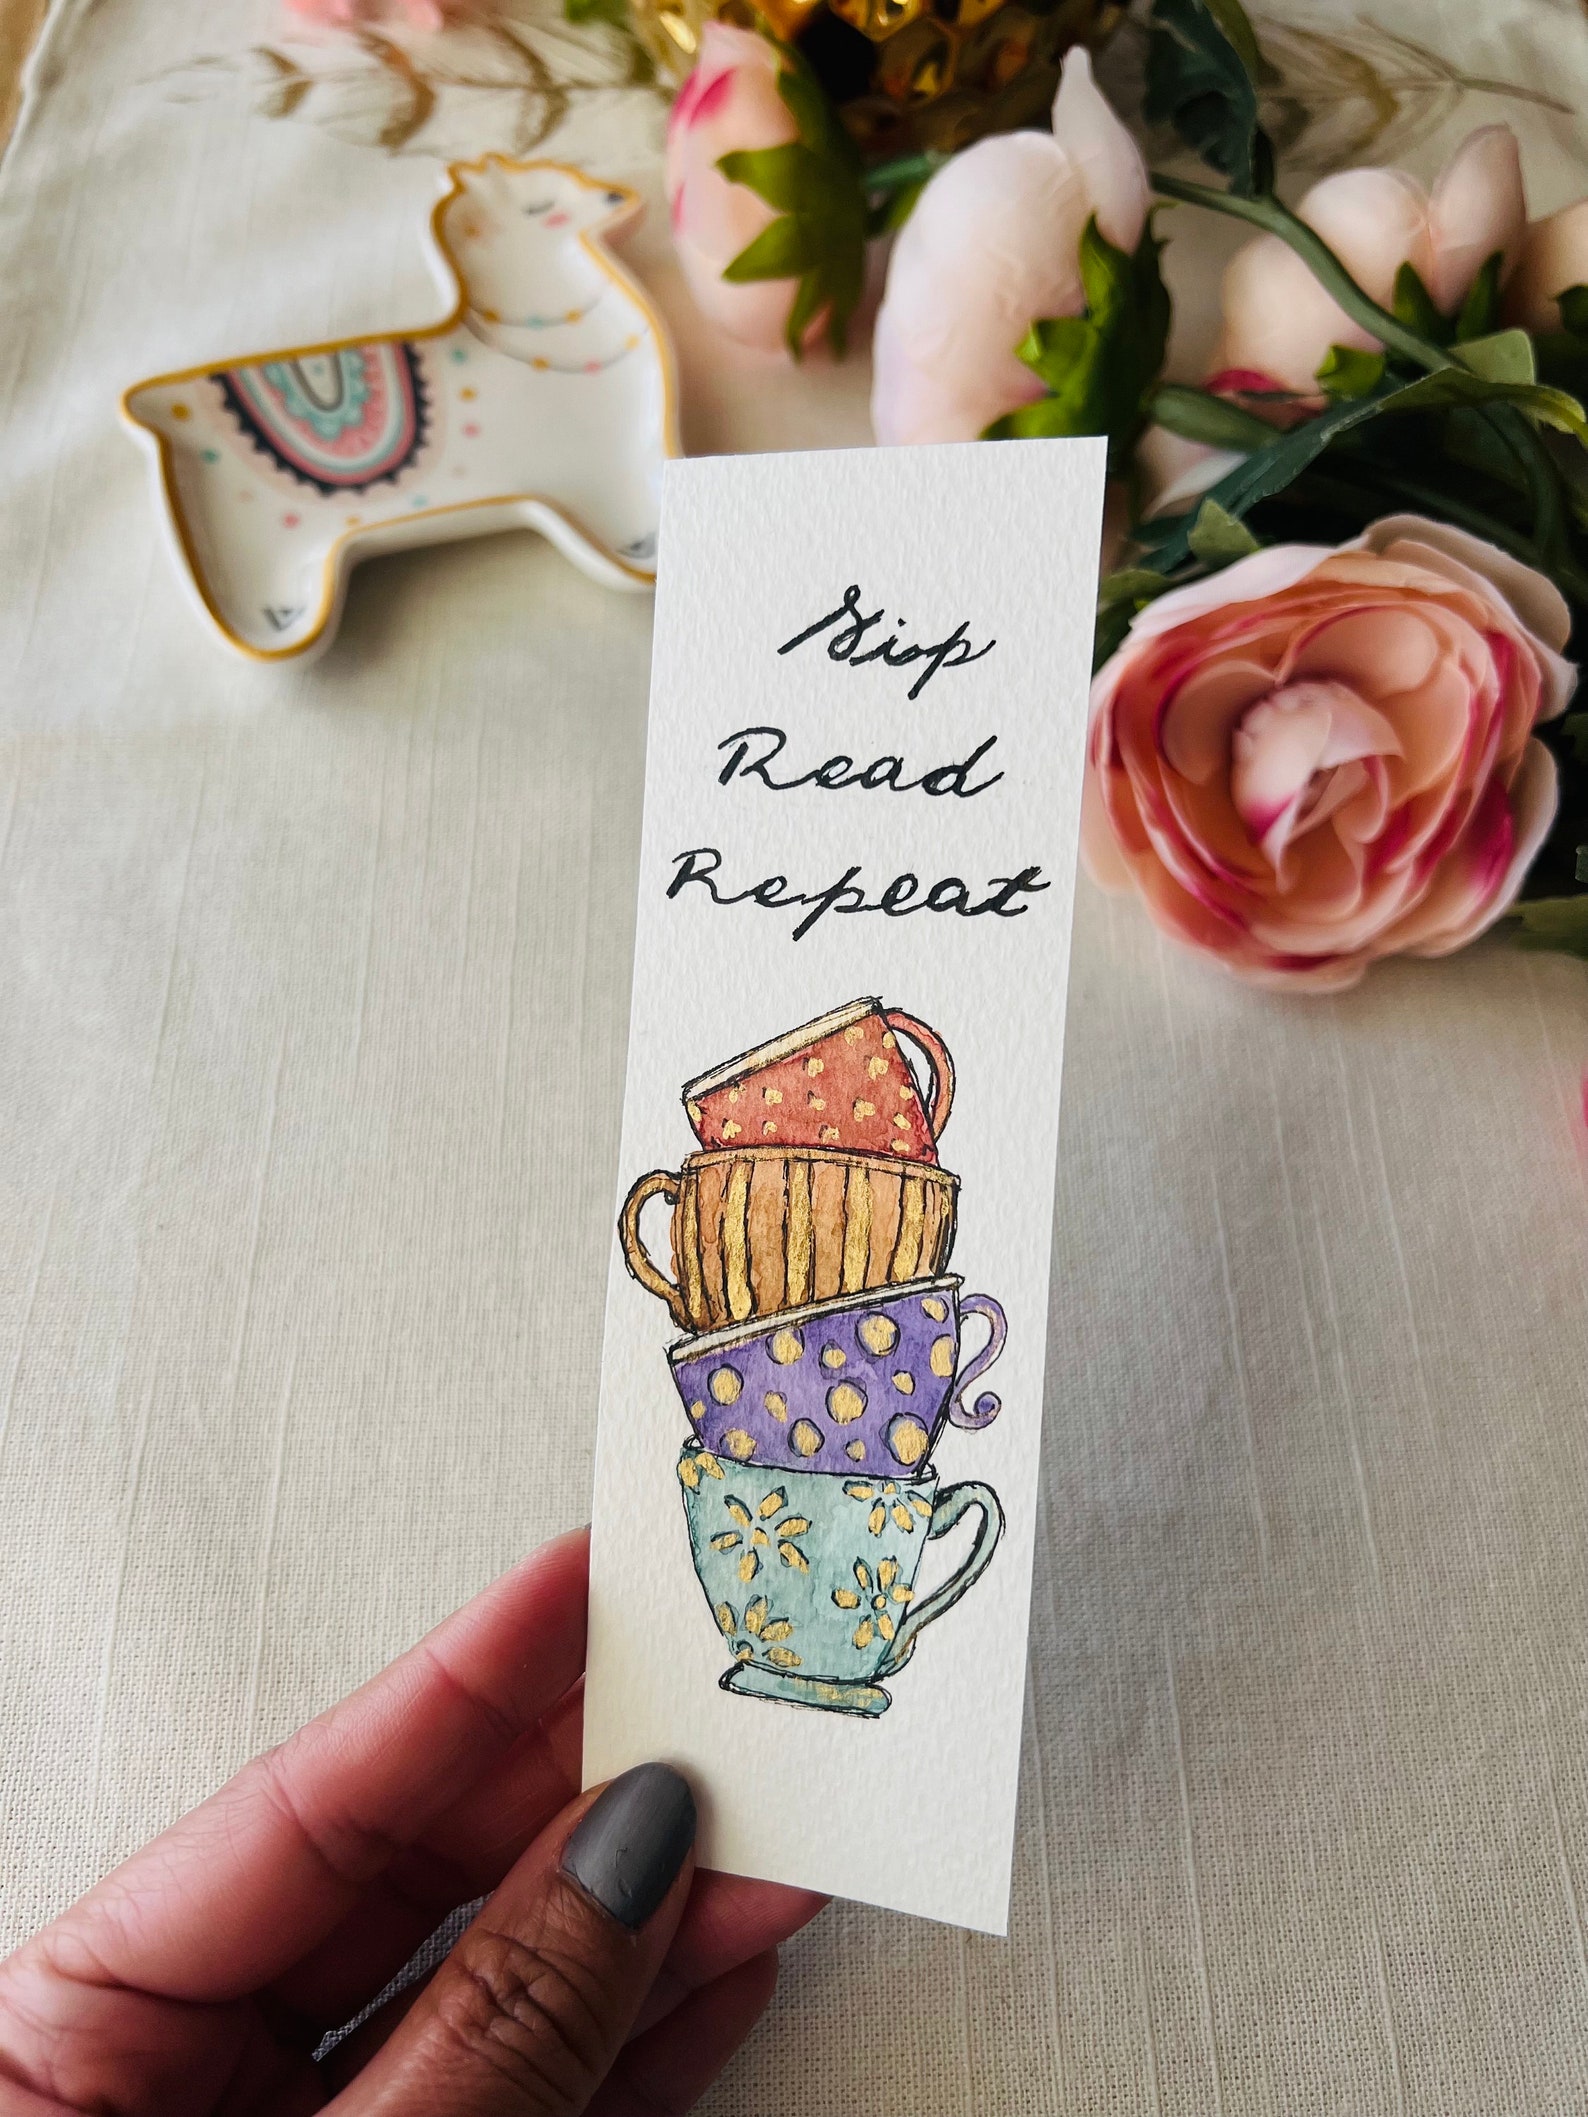 Sip
Read
Repeat